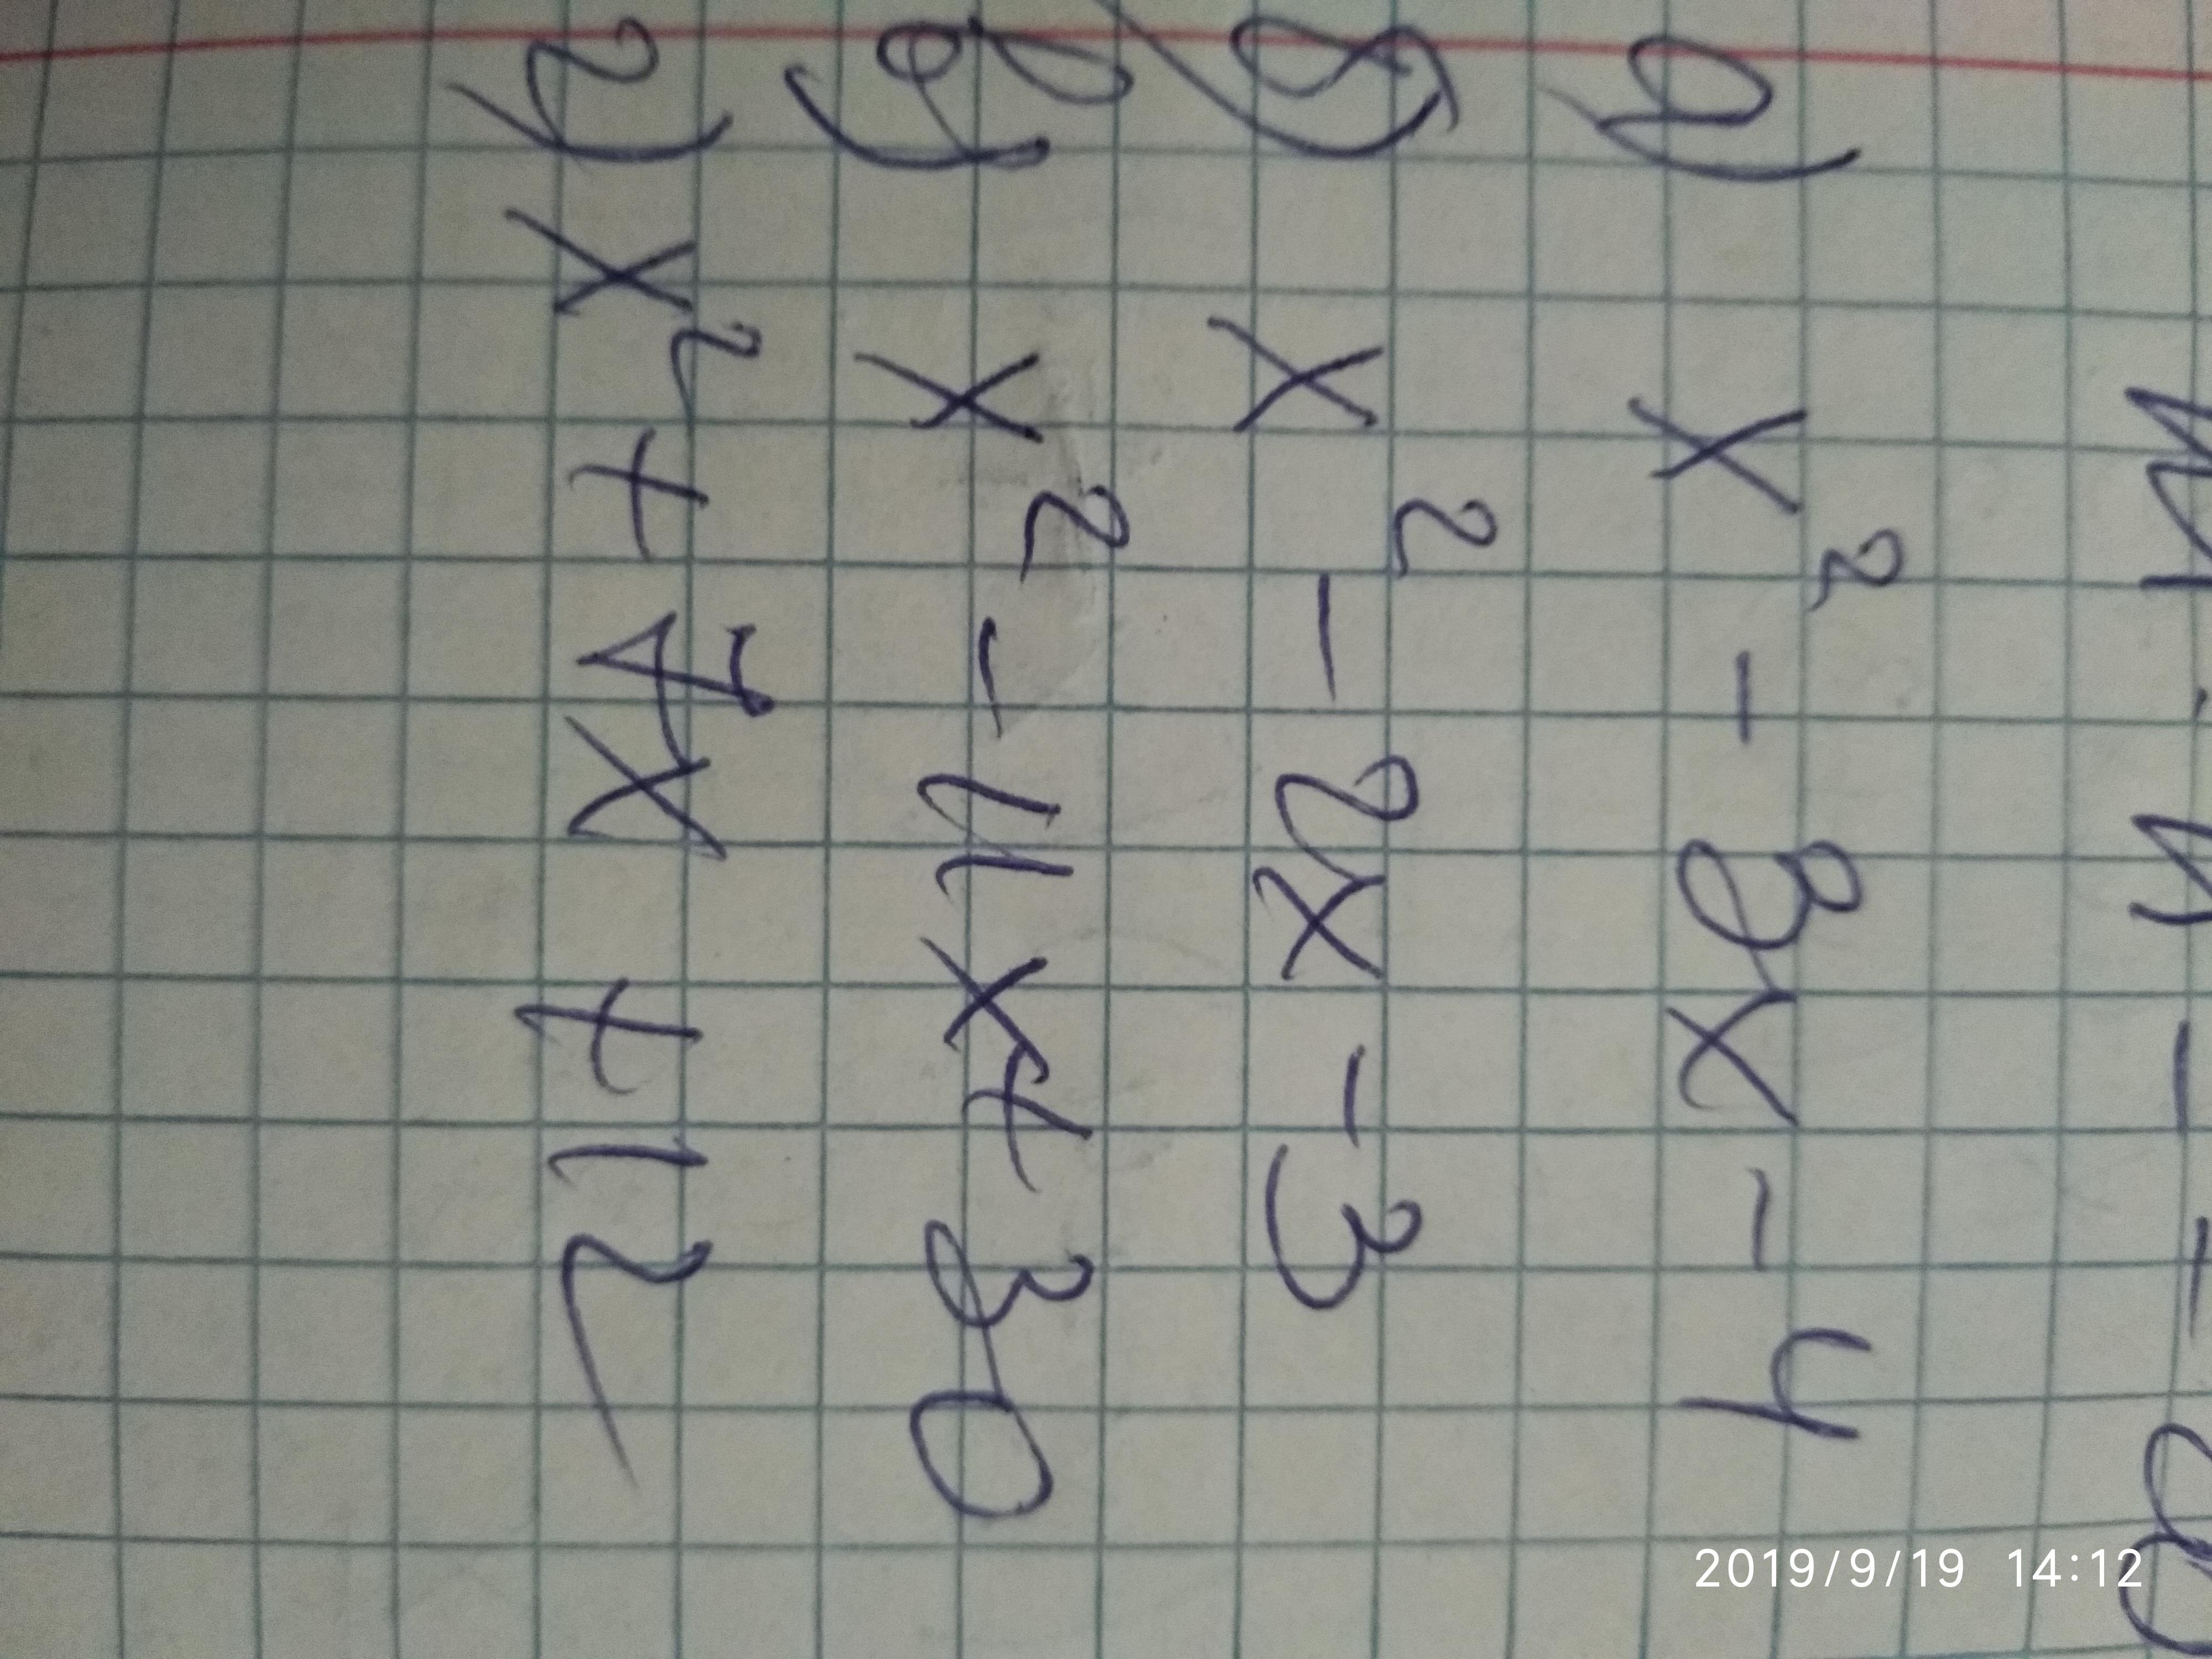 а) x² - 3x - 4
б) x² - 2x - 3
в) x² - 11x + 30
г) x² + 7x + 12
2019/9/19 14:12